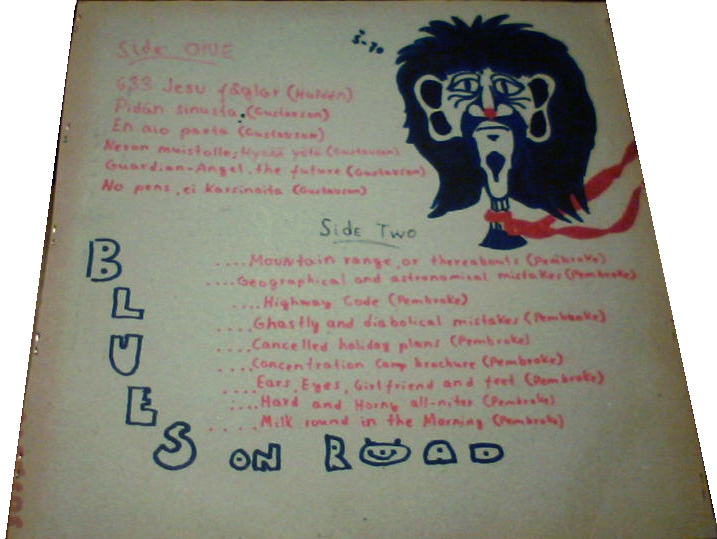 Side ONE
S-70
633 Jesu fåglar (Huldén)
Pidän sinusta (Gustavson)
En aio parta (Gustavson)
Neron muistolle; Hyvää yötä (Gustavson)
Guardian-Angel, the future (Gustavson)
No pens, ei karsinoita (Gustavson)
Side Two
....Mountain range, or thereabouts (Pembroke)
....Geographical and astronomical mistakes (Pembroke)
....Highway Code (Pembroke)
....Ghastly and diabolical mistakes (Pembroke)
....Cancelled holiday plans (Pembroke)
....Concentration Camp brochure (Pembroke)
....Ears, Eyes, Girlfriend and feet (Pembroke)
....Hard and Horny all-niter (Pembroke)
.....Milk round in the Morning (Pembroke)
BLUES ON ROAD